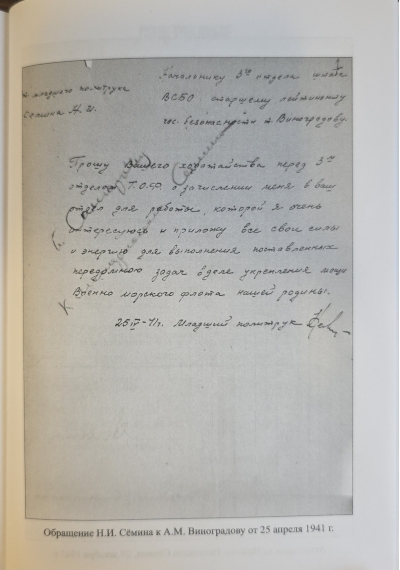 Начальнику 3го отдела штаба
ВСБО старшему лейтенанту
гос. безопасности т. Виноградову.
младшего политрука
Семина Н. И.
Прошу Вашего ходатайства перед 3им
отделом Т.О.Ф. о зачислении меня в ваш
отдел для работы, которой я очень
интересуюсь и приложу все свои силы
и энергию для выполнения поставленных
передомною задач в деле укрепления мощи
Военно морского флота нашей родины.
25/IV-41г. Младший политрук
Обращение Н.И. Сёмина к А.М. Виноградову от 25 апреля 1941 г.